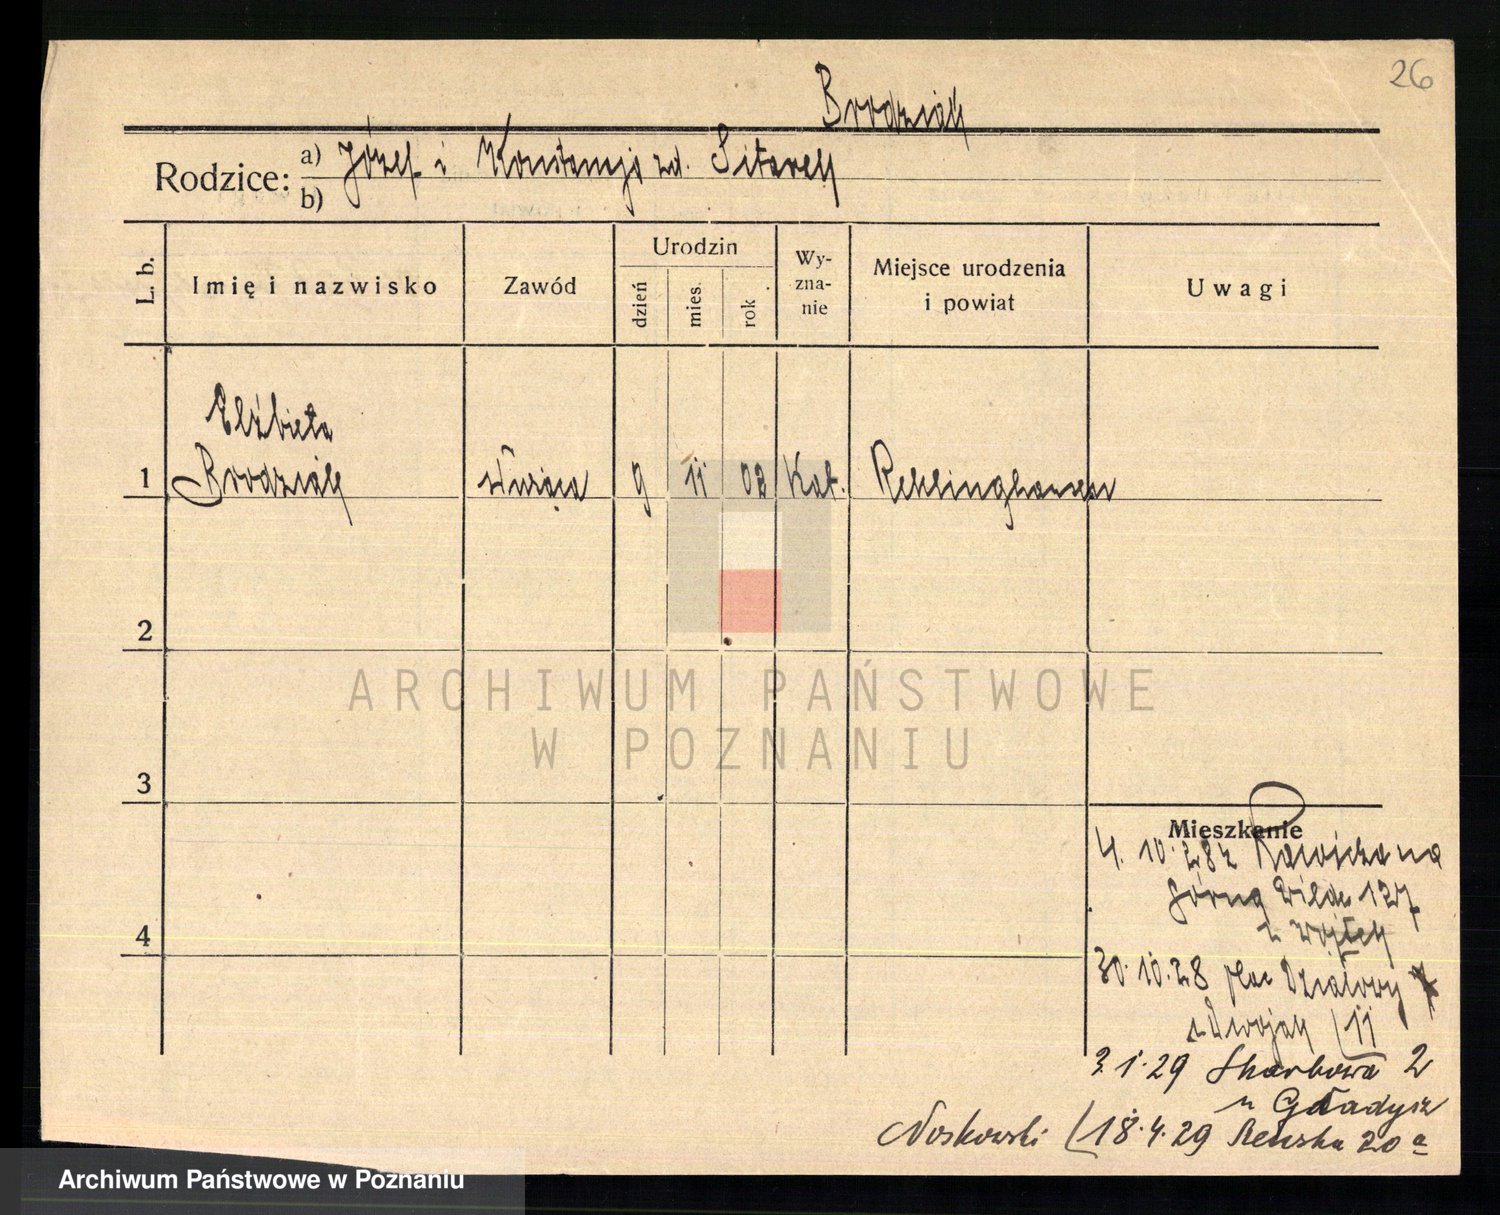 26
Brodziak
Rodzice: a) Józef i Konstancja zd. Sitarek
b)
L. b.
Imię i nazwisko
Zawód
Urodzin
dzień
mies.
rok
Wy-
zna-
nie
Miejsce urodzenia
i powiat
Uwagi
Elżbieta
1 Brodziak służąca 9 11 02 Kat. Reklinghausen
2
ARCHIWUM PAŃSTWOWE
W POZNANIU
3
Mieszkanie
4. 10. 28 z Rawicza na
Górną Wildę 127
u Wojtek
4
30. 10. 28 plac Działowy 7
11
3. 1. 29 Skarbowa 2
u Gładysz
Noskowski 18. 4. 29 20a
Archiwum Państwowe w Poznaniu